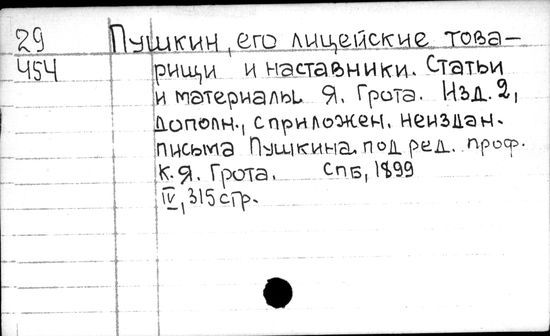 29 Пушкин, его лицейские това-
454 рищи и наставники. Статьи
и материалы Я. Грота. Изд. 2,
дополн., с приложен. неиздан.
письма Пушкина под ред. проф.
К. Я. Грота. СПБ, 1899
IV, 315 стр.